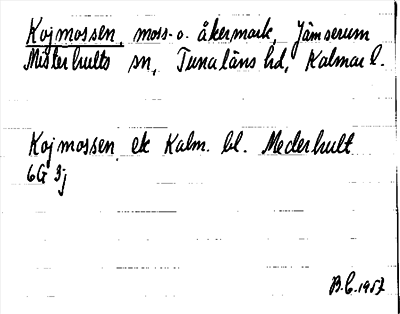 Kojmossen, moss- o. åkermark, Jämserum
Misterhults sn, Tunaläns hd, Kalmar l.
Kojmossen ek Kalm. bl. Mederhult
6G 3j
B.C. 1957